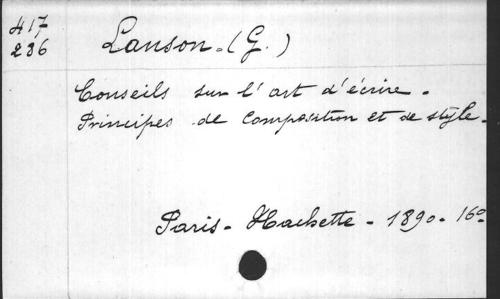 417
236
Lanson. (G.)
Conseils sur l'art d'écrire.
Principes de composition et de style.
Paris - Hachette - 1890. 16º